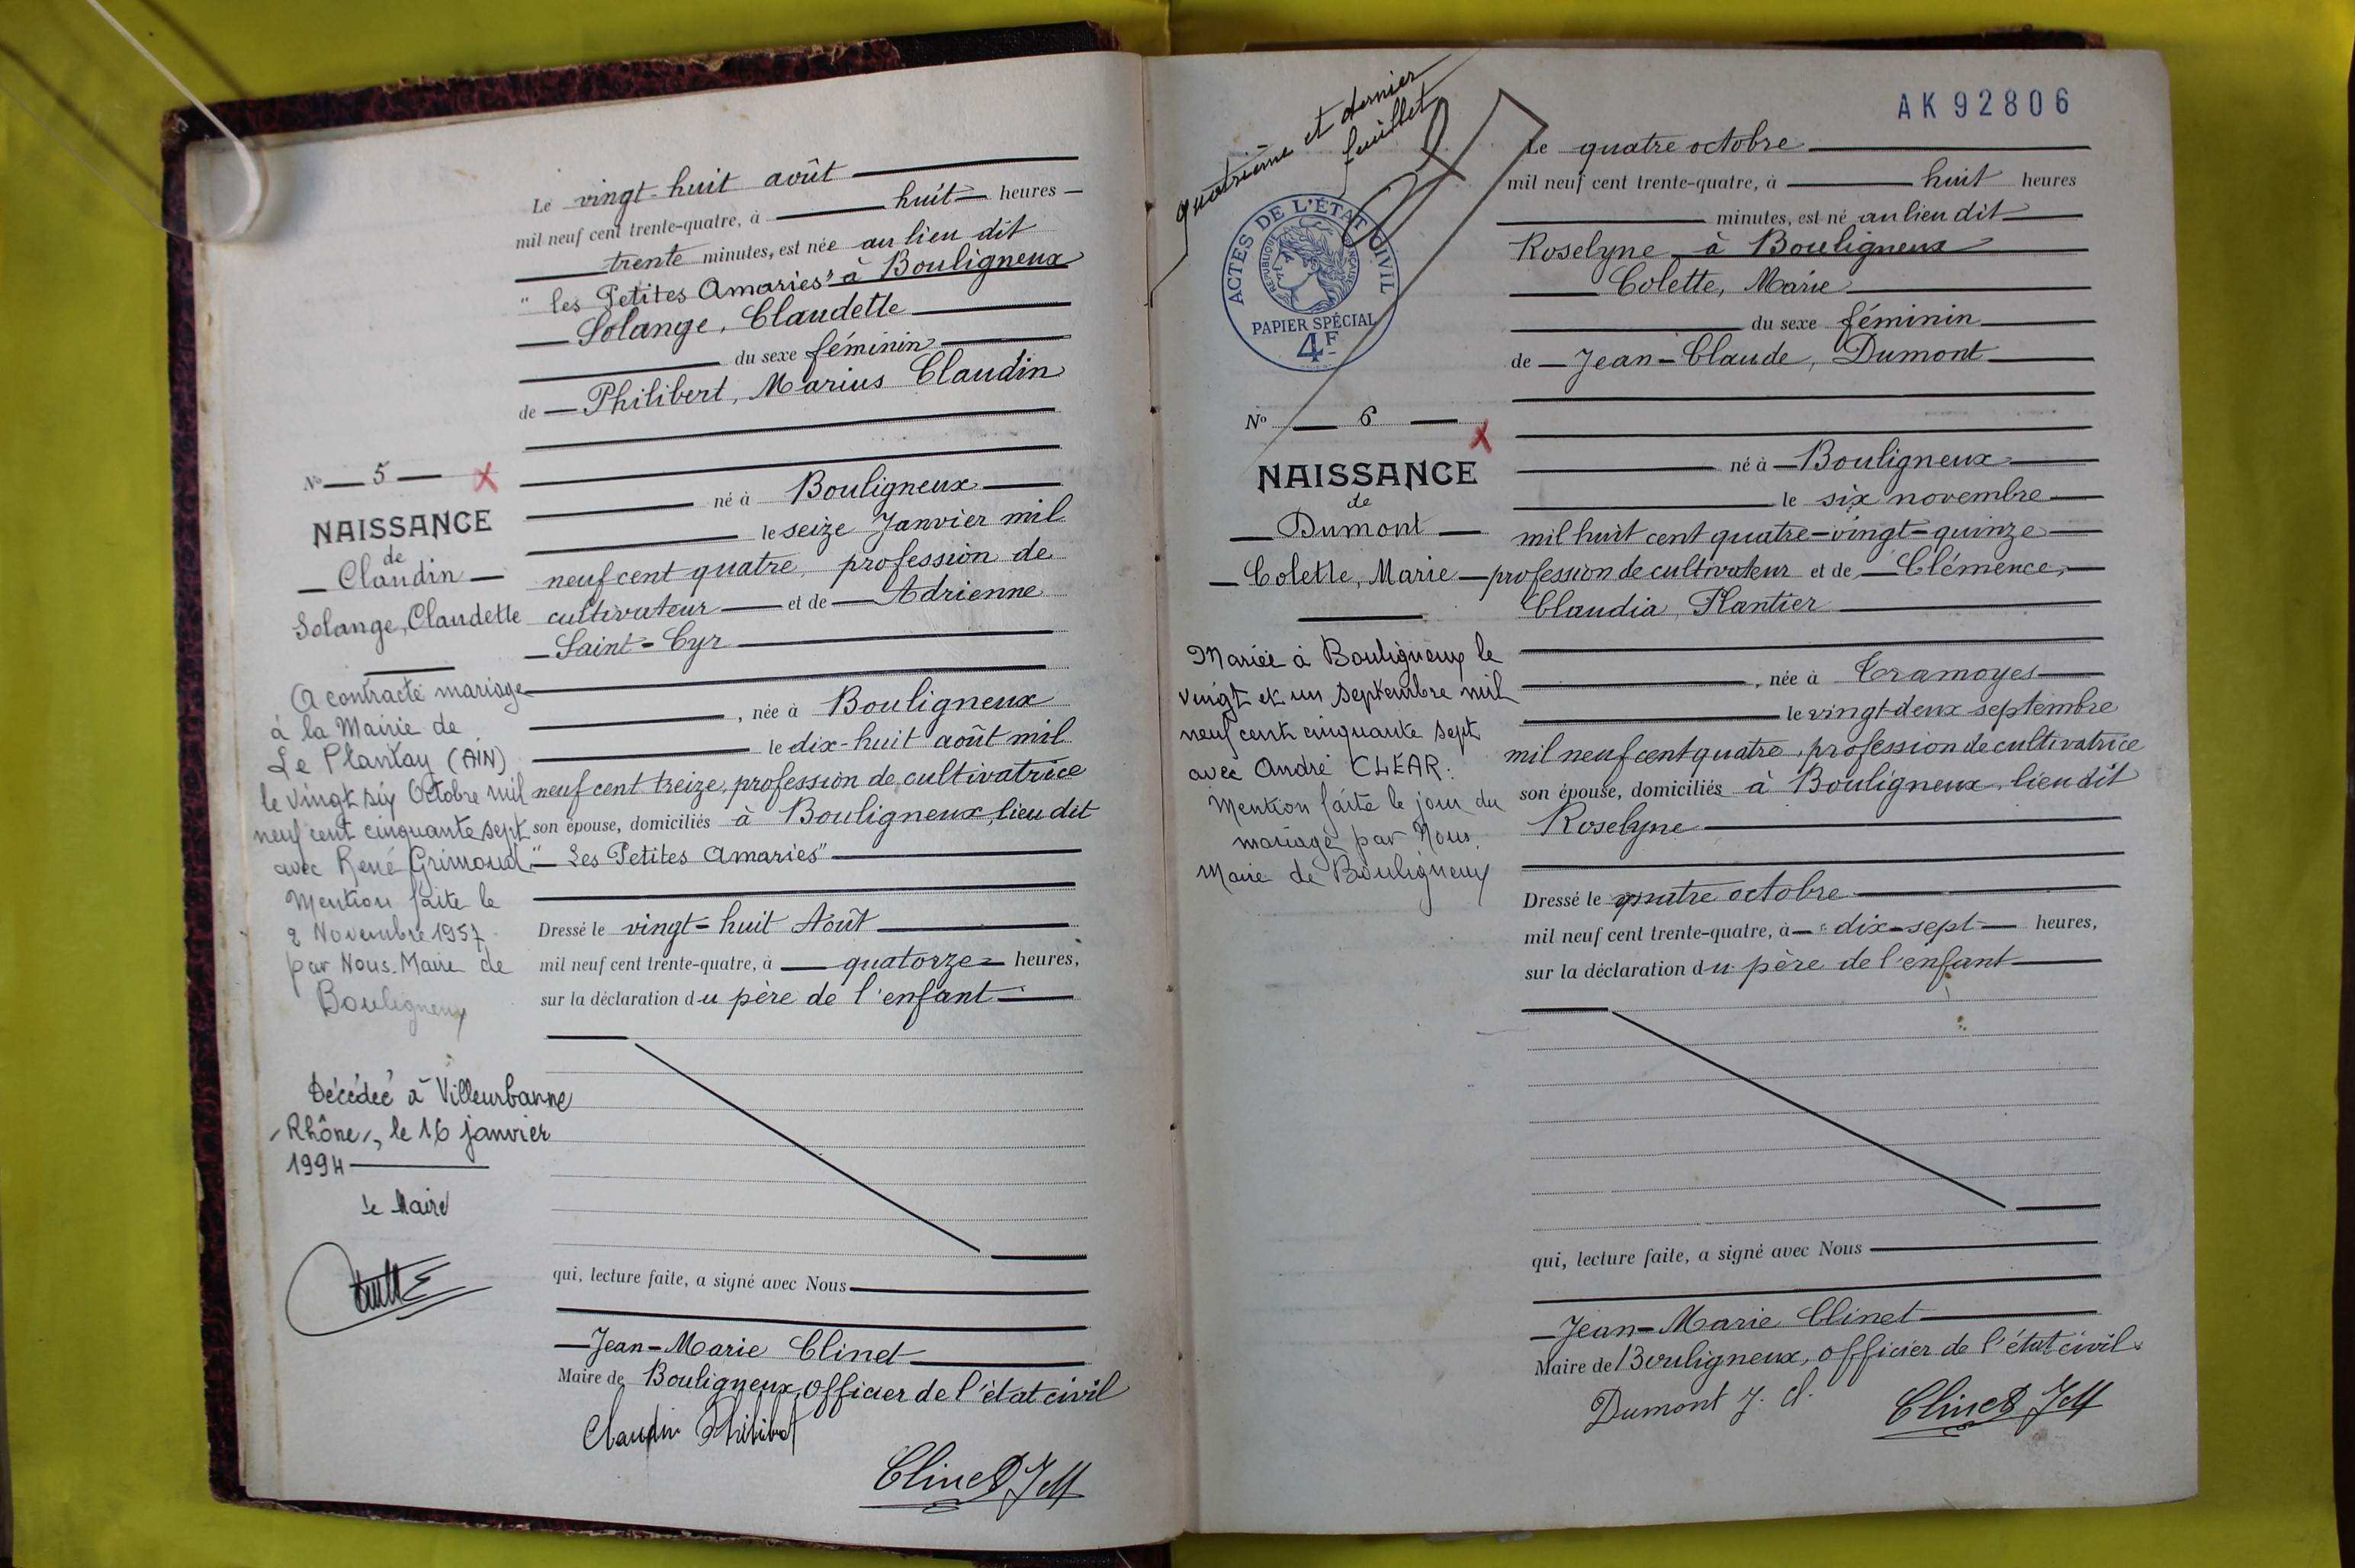 Le vingt-huit août
mil neuf cent trente-quatre, à huit heures
trente minutes, est née au lieu dit
"les Petites Amaries" à Bouligneux
Solange, Claudette
du sexe féminin
de Philibert, Marius Claudin
né à Bouligneux
le seize Janvier mil
neuf cent quatre, profession de
cultivateur et de Adrienne
Saint-Cyr
, née à Bouligneux
le dix-huit août mil
neuf cent treize, profession de cultivatrice
son épouse, domiciliés à Bouligneux, lieu dit
"Les Petites Amaries"
Dressé le vingt-huit Août
mil neuf cent trente-quatre, à quatorze heures,
sur la déclaration du père de l'enfant
qui, lecture faite, a signé avec Nous
Jean-Marie Clinet
Maire de Bouligneux, Officier de l'état civil
Claudin Philibert
Clinet JM
No 5
NAISSANCE
de
Claudin
Solange, Claudette
A contracté mariage
à la Mairie de
Le Plantay (AIN)
le vingt six Octobre mil
neuf cent cinquante sept
avec René Grimoud.
Mention faite le
2 Novembre 1957
par Nous. Maire de
Bouligneux
Décédée à Villeurbanne
/Rhône/, le 16 janvier
1994
Le Maire
quatrième et dernier
feuillet
ACTES DE L'ÉTAT CIVIL
RÉPUBLIQUE FRANÇAISE
PAPIER SPÉCIAL
4F
AK 92806
Le quatre octobre
mil neuf cent trente-quatre, à huit heures
minutes, est né au lieu dit
Roselyne à Bouligneux
Colette, Marie
du sexe féminin
de Jean-Claude, Dumont
né à Bouligneux
le six novembre
mil huit cent quatre-vingt-quinze
profession de cultivateur et de Clémence,
Claudia, Plantier
, née à Tramoyes
le vingt-deux septembre
mil neuf cent quatre, profession de cultivatrice
son épouse, domiciliés à Bouligneux, lieu dit
Roselyne
Dressé le quatre octobre
mil neuf cent trente-quatre, à dix-sept heures,
sur la déclaration du père de l'enfant
qui, lecture faite, a signé avec Nous
Jean-Marie Clinet
Maire de Bouligneux, officier de l'état civil.
Dumont J. Cl.
Clinet JM
No 6
NAISSANCE
de
Dumont
Colette, Marie
Mariée à Bouligneux le
vingt et un septembre mil
neuf cent cinquante sept
avec André CLEAR.
Mention faite le jour du
mariage par Nous.
Maire de Bouligneux